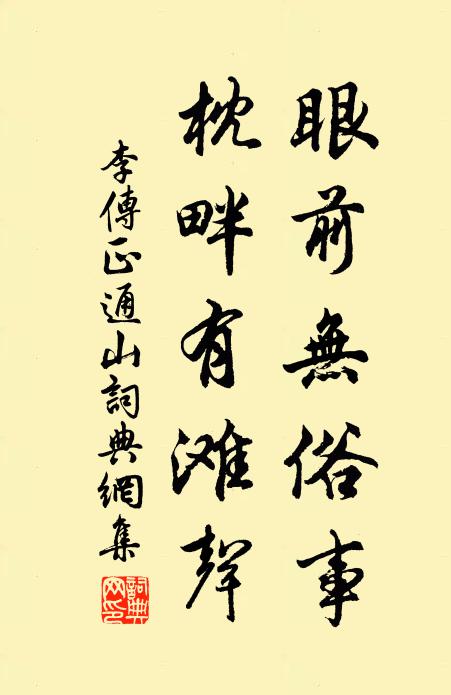 眼前無俗事
枕畔有滩聲
李傳正通山詞典網集
詞典
网印